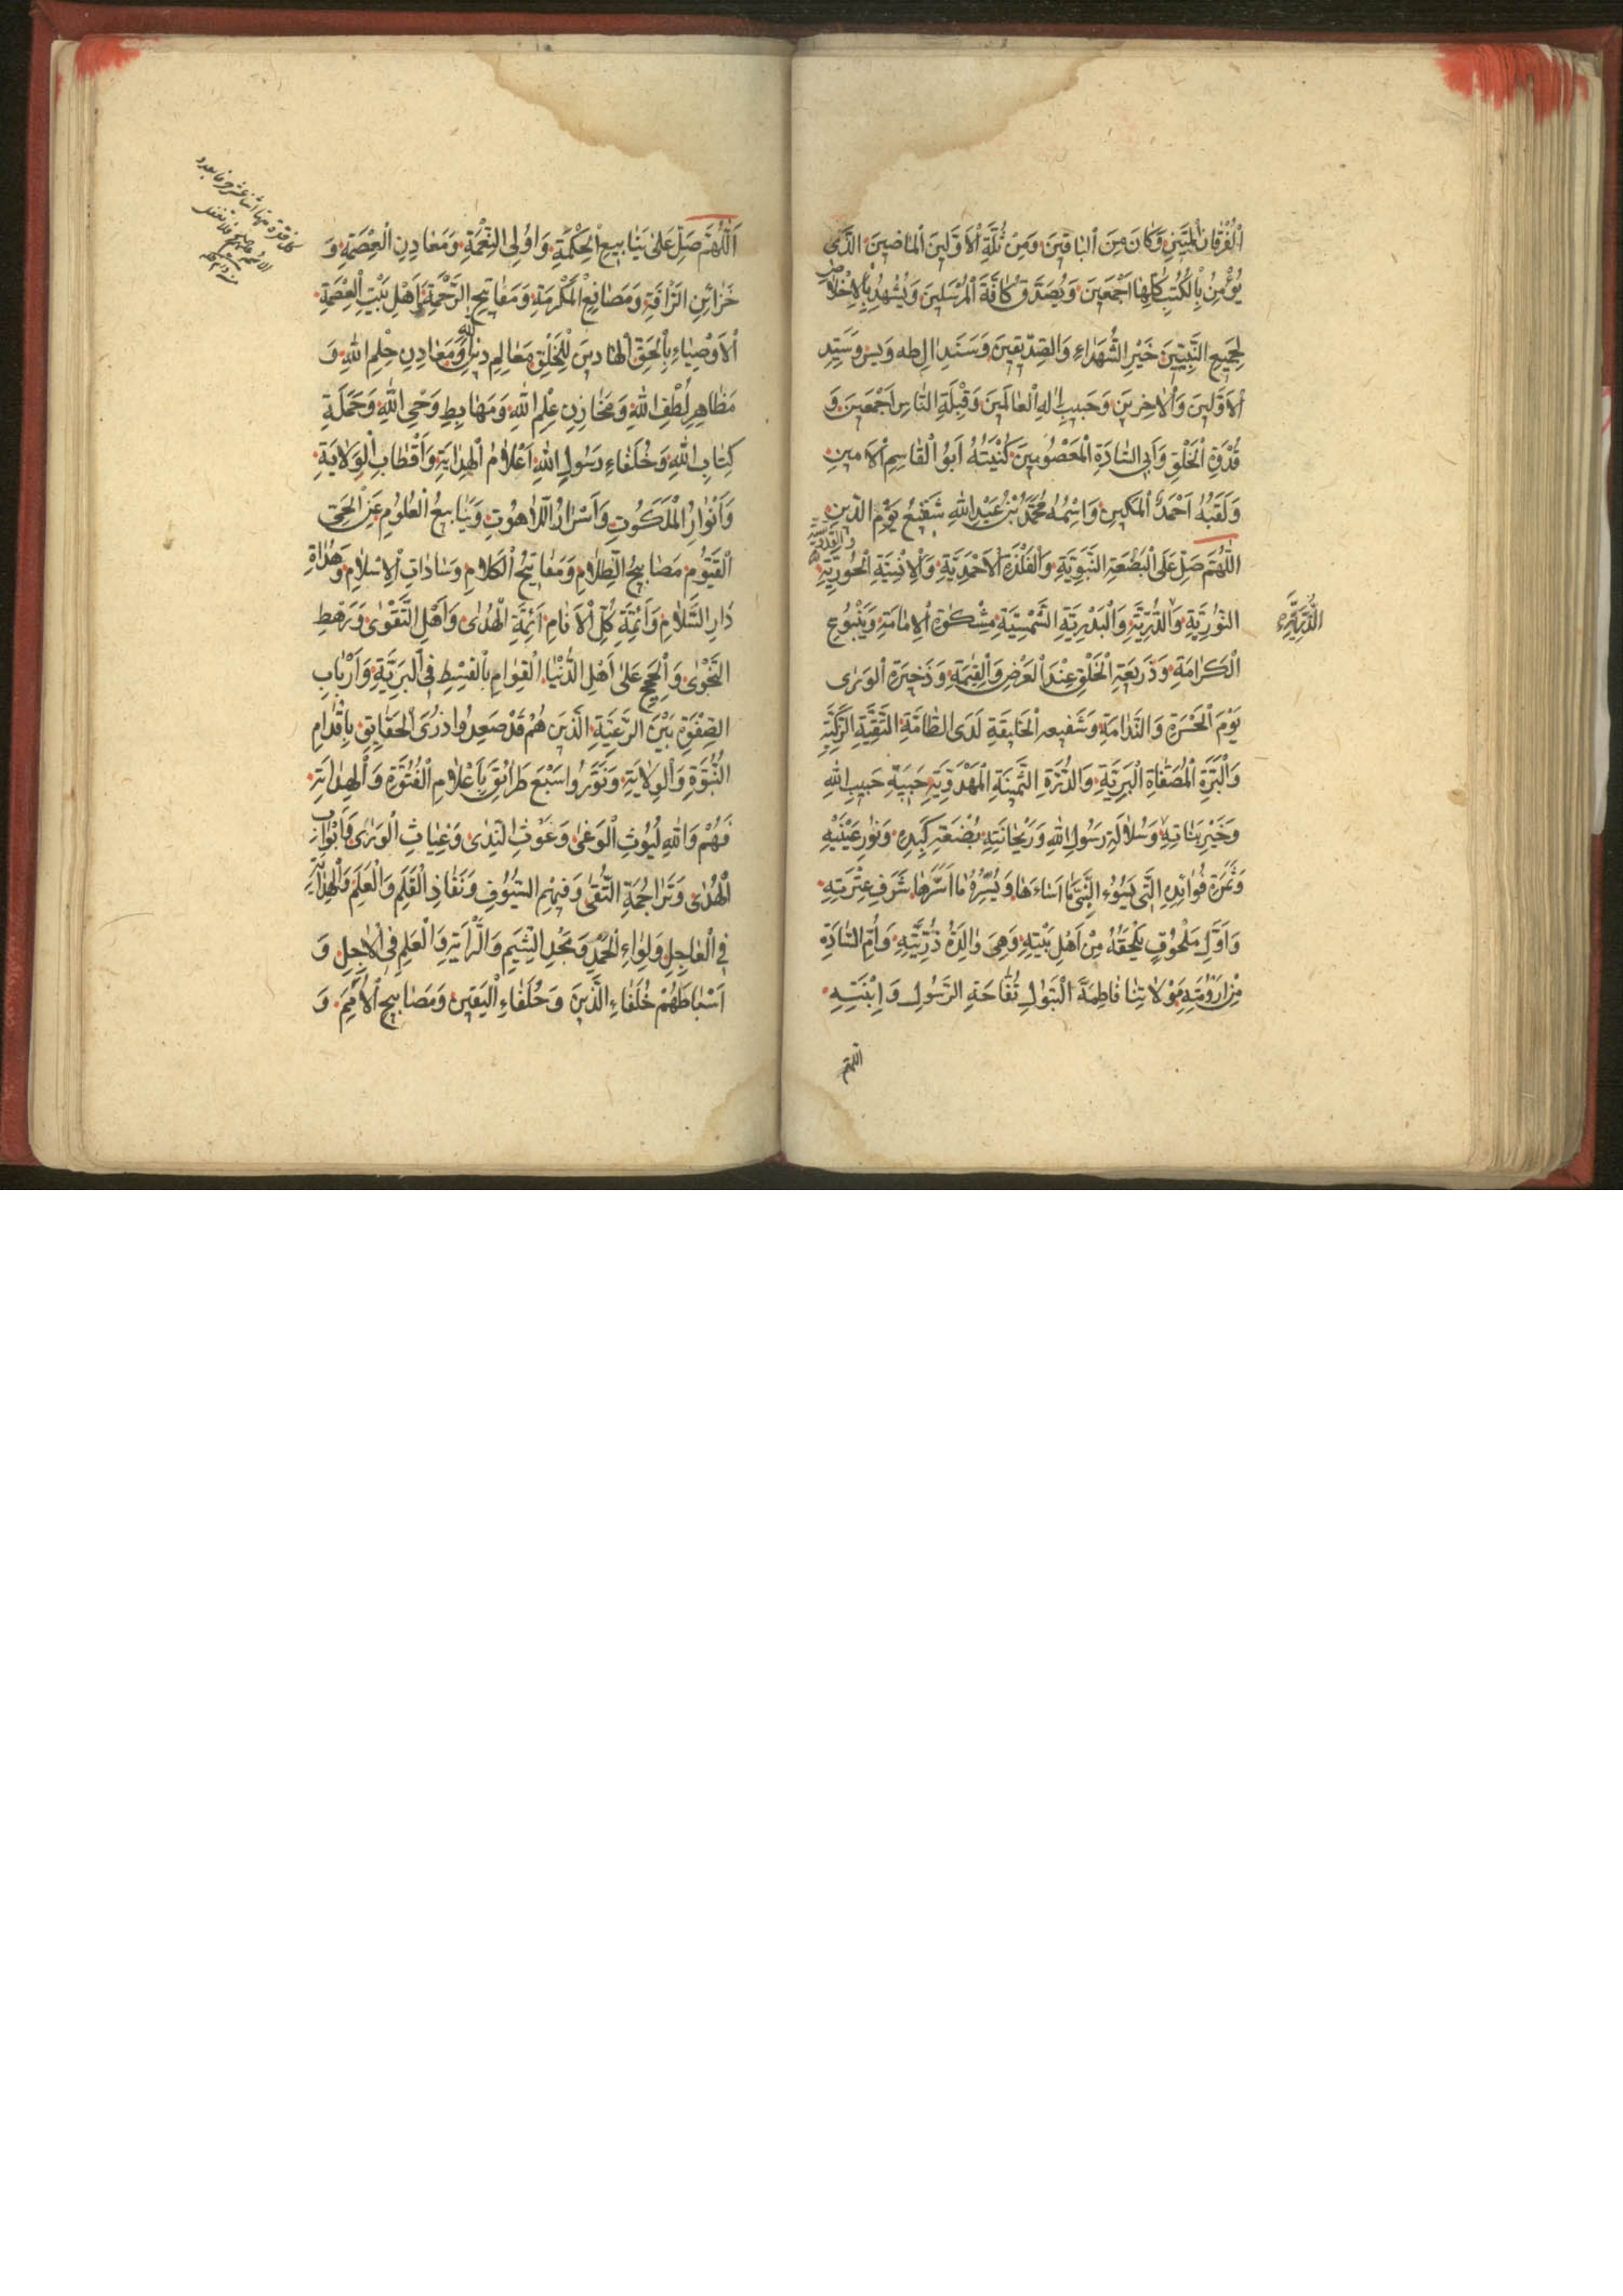 اَلْفُرْقانِ الْمُبَيَّنِ وَكانَ مِنَ اَلْباقينَ وَمِنْ ثُلَّةِ اْلاَوَّلينَ اَلْماضينَ الَّذى
يُؤْمِنُ بِالْكُتُبِ كُلِّها اَجْمَعينَ وَيُصَدِّقُ كافَّةَ الْمُرْسَلينَ وَيَشْهَدُ بِاْلاِخْلاصِ
لِجَميعِ النَّبِيّينَ خَيْرِ الشُّهَداءِ وَالصِّدّيقينَ وَسَنَدِ الِ طه وَيس وَسَيِّدِ
اْلاَوَّلينَ وَاْلاخِرينَ وَحَبيبِ اِلهِ الْعالَمينَ وَقِبْلَةِ النّاسِ اَجْمَعينَ وَ
قُدْوَةِ الْخَلْقِ وَاَبِى السّادَةِ الْمَعْصُومينَ كُنْيَتُهُ اَبُو الْقاسِمِ اْلاَمينِ
وَلَقَبُهُ اَحْمَدُ الْمَكينِ وَاسْمُهُ مُحَمَّدُ بْنُ عَبْدِ اللّٰهِ شَفيعُ يَوْمِ الدّينِ
اَللّهُمَّ صَلِّ عَلَى الْبَضْعَةِ النَّبَوِيَّةِ وَالْفَلْذَةِ اْلاَحْمَدِيَّةِ وَاْلاِنْسِيَّةِ الْحُورِيَّةِ
النُّورِيَّةِ وَالدُّرِّيَّةِ وَالْبَدْرِيَّةِ الشَّمْسِيَّةِ مِشْكوةِ اْلاِمامَةِ وَيَنْبُوعِ
الْكَرامَةِ وَذَريعَةِ الْخَلْقِ عِنْدَ الْعَرْضِ وَالْقِيمَةِ وَذَخيرَةِ الْوَرى
يَوْمَ الْحَسْرَةِ وَالنَّدامَةِ وَشَفيعه الْخَليقَةِ لَدَى الطّامَّةِ النَّقِيَّةِ الزَّكِيَّةِ
وَالْبَرَّةِ الْمُصَفّاةِ الْبَرِيَّةِ وَالدُّرَّةِ الثَّمينَةِ الْمَهْدَوِيَّةِ حَبيبَةِ حَبيبِ اللّٰهِ
وَخَيْرِ بَناتِهِ وَسُلالَةِ رَسُولِ اللّٰهِ وَرَيْحانَتِهِ بُضْعَةِ كَبِدِهِ وَنُورِ عَيْنَيْهِ
وَثَمَرَةِ فُؤادِهِ الَّتى يَسُوءُ النَّبِىَّ ما اَساءَها وَيُسِرُّهُ ما اَسَرَّها شَرَفِ عِتْرَتِهِ
وَاَوَّلِ مَلْحُوقٍ يَلْحَقُهُ مِنْ اَهْلِ بَيْتِهِ وَهِىَ والِدَةُ ذُرِّيَّتِهِ وَاُمِّ السّادَةِ
مِنْ اَرُومَتِهِ مَوْلاتِنا فاطِمَةَ الْبَتُولِ تُفّاحَةِ الرَّسُولِ وَابْنَتِهِ
اللهم
اَللّهُمَّ صَلِّ عَلى يَنابيعِ الْحِكْمَةِ وَاُولِى النِّعْمَةِ وَمَعادِنِ الْعِصْمَةِ وَ
خَزائِنِ الرَّاْفَةِ وَمَصانِعِ الْمَكْرُمَةِ وَمَفاتيحِ الرَّحْمَةِ اَهْلِ بَيْتِ الْعِصْمَةِ
اْلاَوْصِياءِ بِالْحَقِّ الْهادينَ لِلْخَلْقِ مَعالِمِ دينِ اللّٰهِ وَمَعادِنِ حِلْمِ اللّٰهِ وَ
مَظاهِرِ لُطْفِ اللّٰهِ وَمَخازِنِ عِلْمِ اللّٰهِ وَمَهابِطِ وَحْىِ اللّٰهِ وَحَمَلَةِ
كِتابِ اللّٰهِ وَخُلَفاءِ رَسُولِ اللّٰهِ اَعْلامُ الْهِدايَةِ وَاَقْطابِ الْوِلايَةِ
وَاَنْوارُ الْمَلَكُوتِ وَاَسْرارُ اللّاهُوتِ وَيَنابيعُ الْعُلُومِ عَنِ الْحَىِّ
الْقَيُّومِ مَصابيحُ الظَّلامِ وَمَفاتيحُ الْكَلامِ وَساداتِ اْلاِسْلامِ وَهُداةِ
دارِ السَّلامِ وَاَئِمَّةِ كُلِّ اْلاَنامِ اَئِمَّةِ الْهُدى وَاَهْلِ التَّقْوى وَرَهْطِ
النَّجْوى وَالْحُجَجِ عَلى اَهْلِ الدُّنْيا الْقِوامِ بِالْقِسْطِ فِى الْبَرِيَّةِ وَاَرْبابِ
الصِّفْوَةِ بَيْنَ الرَّعِيَّةِ الَّذينَ هُمْ قَدْ صَعِدُوا ذُرَى الْحَقايِقِ بِاَقْدامِ
النُّبُوَّةِ وَالْوِلايَةِ وَنَوَّرُوا سَبْعَ طَرائِقَ بِاَعْلامِ الْفُتُوَّةِ وَالْهِدايَةِ
فَهُمْ وَاللّٰهِ لُيُوثِ الْوَغى وَغُوثِ النَّدى وَغِياثِ الْوَرى وَاَبْوابِ
الْهُدى وَتَراجُمَةِ التُّقى وَفيهِمِ السُّيُوفِ وَنَفاذِ الْقَلَمِ وَالْعَلَمِ وَالْهِدايَةِ
فِى الْعاجِلِ وَلِواءِ الْحَمْدِ وَمَجْدِ الشِّيَمِ وَالرّايَةِ وَالْعَلَمِ فِى اْلاجِلِ وَ
اَسْباطَهُمْ خُلَفاءِ الدّينَ وَحُلَفاءِ الْيَقينِ وَمَصابيحِ اْلاُمَمِ وَ